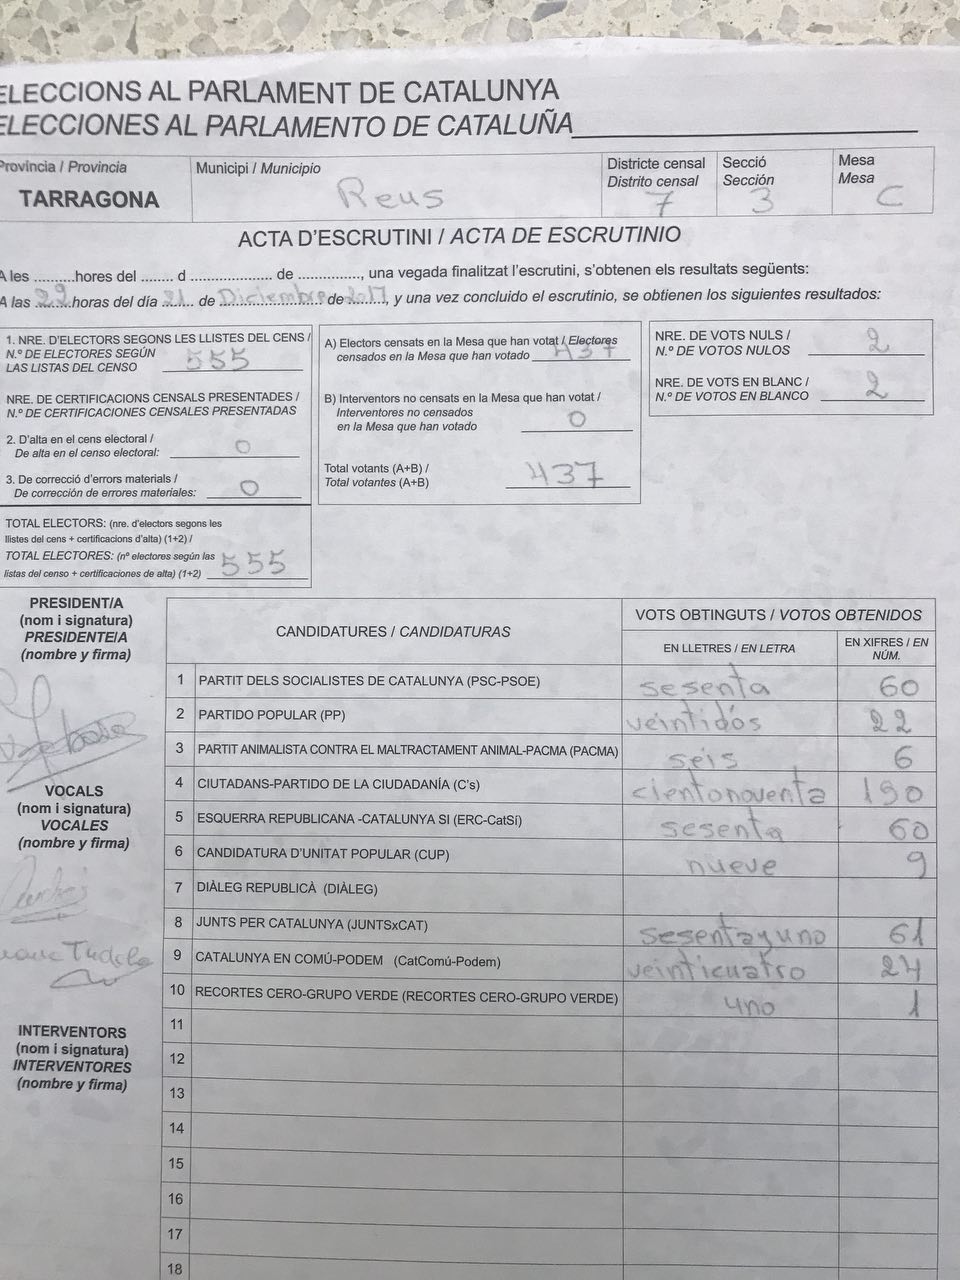 ELECCIONS AL PARLAMENT DE CATALUNYA
ELECCIONES AL PARLAMENTO DE CATALUÑA
Provincia / Provincia
TARRAGONA
Municipi / Municipio
Reus
Districte censal
Distrito censal
7
Secció
Sección
3
Mesa
Mesa
C
ACTA D'ESCRUTINI / ACTA DE ESCRUTINIO
A les ..........hores del ....... d ................... de ..............., una vegada finalitzat l'escrutini, s'obtenen els resultats següents:
A las 22 horas del día 21 de Diciembre de 2017, y una vez concluido el escrutinio, se obtienen los siguientes resultados:
1. NRE. D'ELECTORS SEGONS LES LLISTES DEL CENS /
N.º DE ELECTORES SEGÚN
LAS LISTAS DEL CENSO 555
NRE. DE CERTIFICACIONS CENSALS PRESENTADES /
N.º DE CERTIFICACIONES CENSALES PRESENTADAS
2. D'alta en el cens electoral /
De alta en el censo electoral: 0
3. De correcció d'errors materials /
De corrección de errores materiales: 0
TOTAL ELECTORS: (nre. d'electors segons les
llistes del cens + certificacions d'alta) (1+2) /
TOTAL ELECTORES: (nº electores según las
listas del censo + certificaciones de alta) (1+2) 555
A) Electors censats en la Mesa que han votat / Electores
censados en la Mesa que han votado 437
B) Interventors no censats en la Mesa que han votat /
Interventores no censados
en la Mesa que han votado 0
Total votants (A+B) /
Total votantes (A+B) 437
NRE. DE VOTS NULS /
N.º DE VOTOS NULOS 2
NRE. DE VOTS EN BLANC /
N.º DE VOTOS EN BLANCO 2
PRESIDENT/A
(nom i signatura)
PRESIDENTE/A
(nombre y firma)
VOCALS
(nom i signatura)
VOCALES
(nombre y firma)
Tudela
INTERVENTORS
(nom i signatura)
INTERVENTORES
(nombre y firma)
CANDIDATURES / CANDIDATURAS
VOTS OBTINGUTS / VOTOS OBTENIDOS
EN LLETRES / EN LETRA
EN XIFRES / EN
NÚM.
1 PARTIT DELS SOCIALISTES DE CATALUNYA (PSC-PSOE) sesenta 60
2 PARTIDO POPULAR (PP) veintidós 22
3 PARTIT ANIMALISTA CONTRA EL MALTRACTAMENT ANIMAL-PACMA (PACMA) seis 6
4 CIUTADANS-PARTIDO DE LA CIUDADANÍA (C's) cientonoventa 190
5 ESQUERRA REPUBLICANA -CATALUNYA SI (ERC-CatSí) sesenta 60
6 CANDIDATURA D'UNITAT POPULAR (CUP) nueve 9
7 DIÀLEG REPUBLICÀ (DIÀLEG)
8 JUNTS PER CATALUNYA (JUNTSxCAT) sesentayuno 61
9 CATALUNYA EN COMÚ-PODEM (CatComú-Podem) veinticuatro 24
10 RECORTES CERO-GRUPO VERDE (RECORTES CERO-GRUPO VERDE) uno 1
11
12
13
14
15
16
17
18